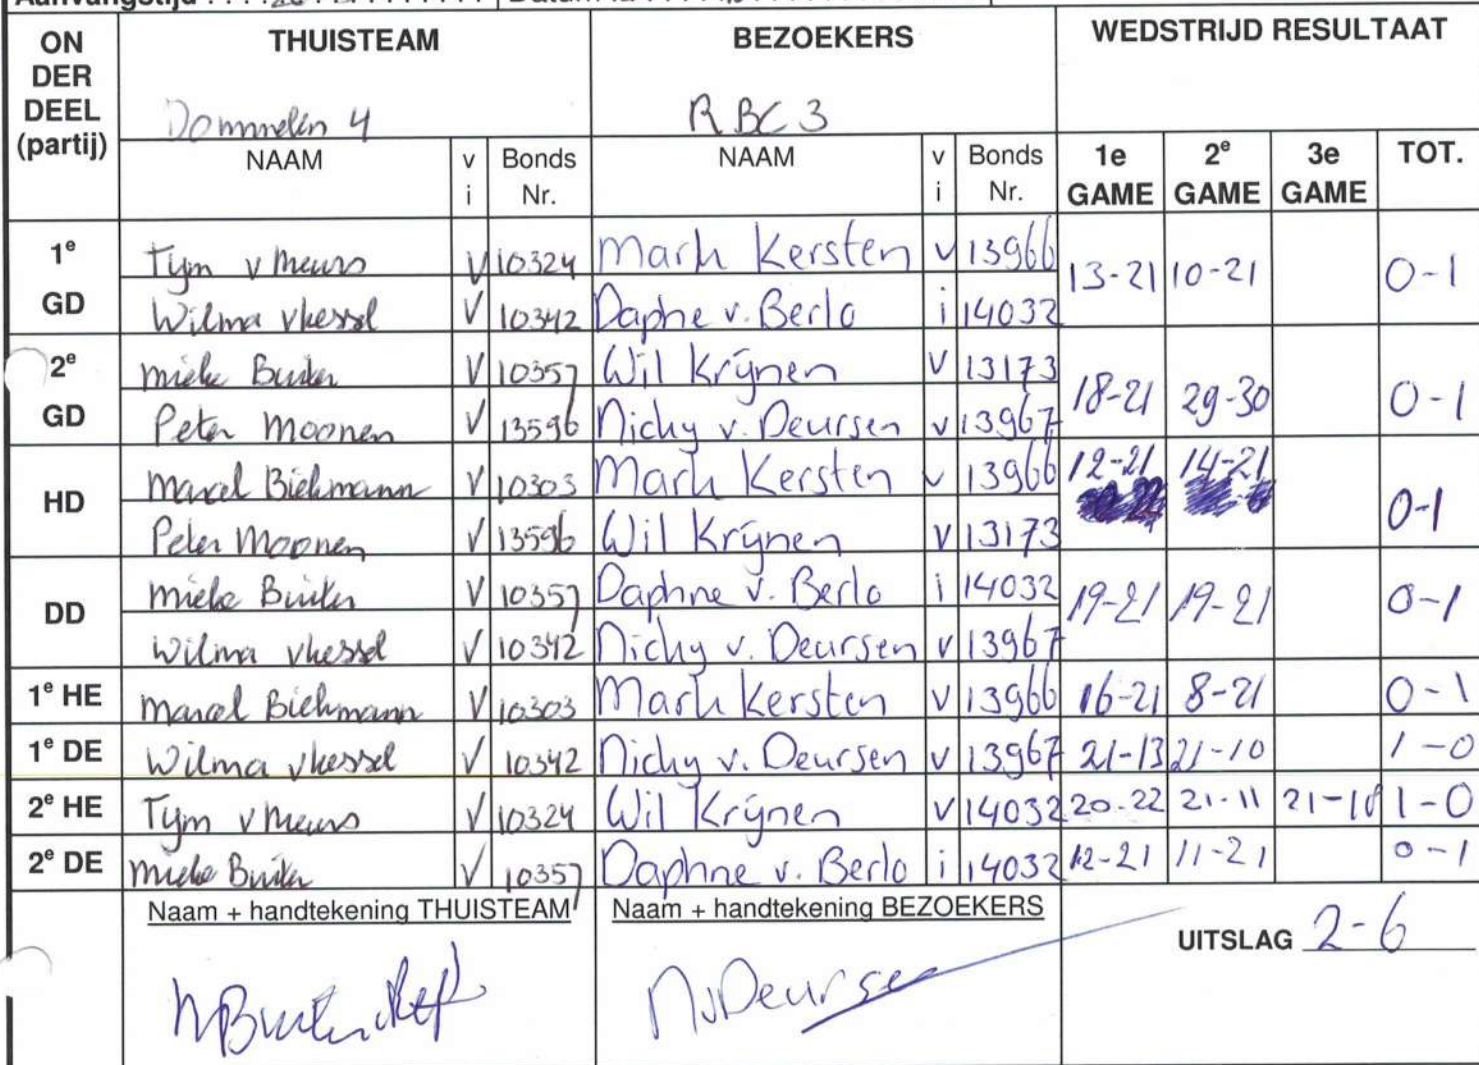 Aanvangstijd
ON DER DEEL (partij) THUISTEAM BEZOEKERS WEDSTRIJD RESULTAAT
Dommelen 4 RBC 3
NAAM v i Bonds Nr. NAAM v i Bonds Nr. 1e GAME 2e GAME 3e GAME TOT.
1e GD Tym v Meurs V 10324 Mark Kersten v 13966 13-21 10-21 0-1
Wilma vkessel V 10342 Daphe v. Berlo i 14032
2e GD Mieke Buiter V 10357 Wil Krijnen v 13173 18-21 29-30 0-1
Peter Moonen V 13596 Nicky v. Deursen v 13967
HD Marcel Biekmann V 10303 Mark Kersten v 13966 12-21 14-21 0-1
Peter Moonen V 13596 Wil Krijnen v 13173
DD Mieke Buiter V 10357 Daphne v. Berlo i 14032 19-21 19-21 0-1
Wilma vkessel V 10342 Nicky v. Deursen v 13967
1e HE Marcel Biekmann V 10303 Mark Kersten v 13966 16-21 8-21 0-1
1e DE Wilma vkessel V 10342 Nicky v. Deursen v 13967 21-13 21-10 1-0
2e HE Tym v Meurs V 10324 Wil Krijnen v 14032 20-22 21-11 21-18 1-0
2e DE Mieke Buiter V 10357 Daphne v. Berlo i 14032 12-21 11-21 0-1
Naam + handtekening THUISTEAM Naam + handtekening BEZOEKERS
UITSLAG 2-6
NvDeursen